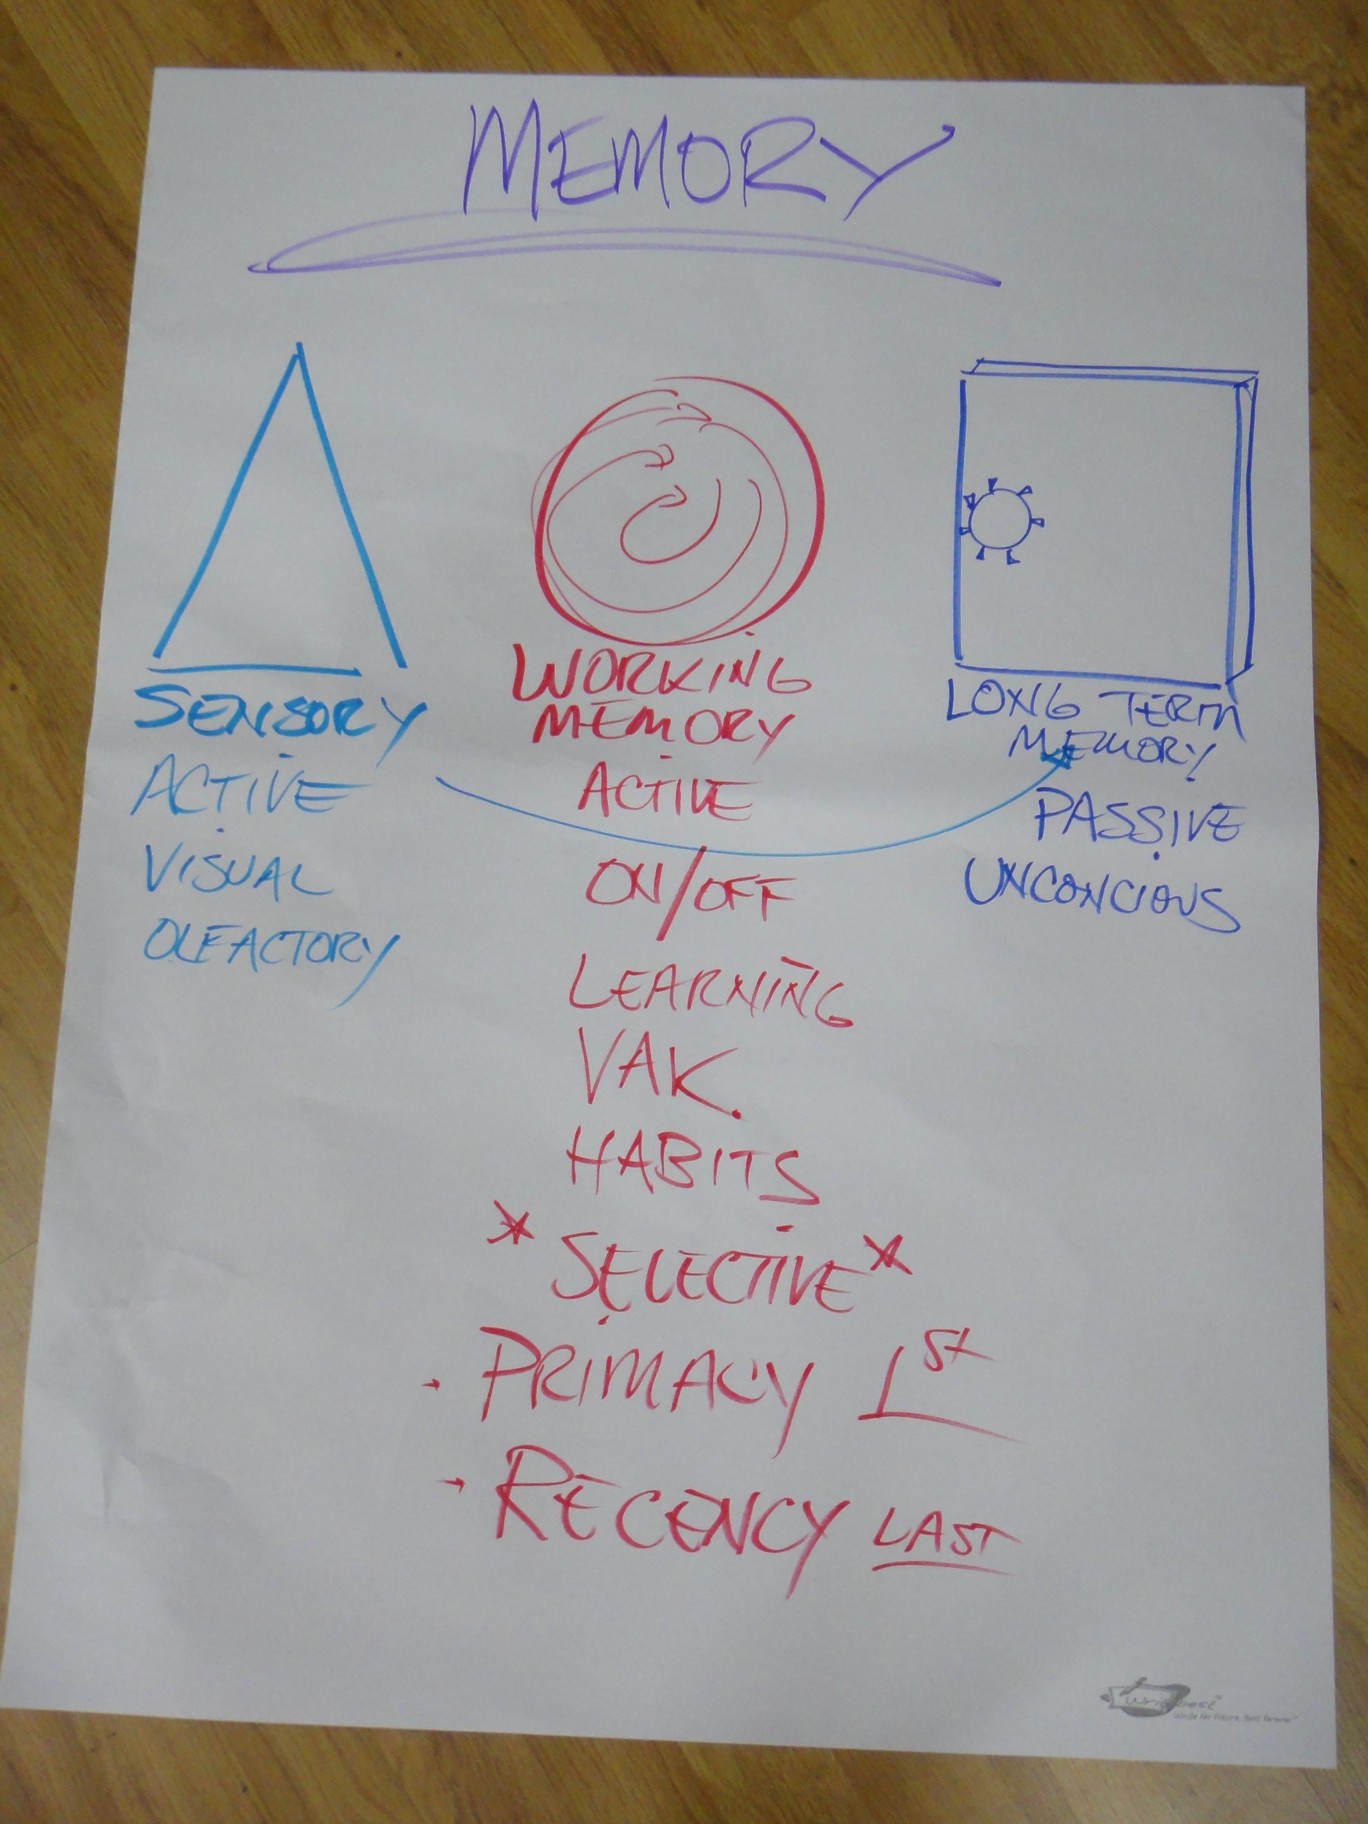 MEMORY
SENSORY
ACTIVE
VISUAL
OLFACTORY
WORKING
MEMORY
ACTIVE
ON/OFF
LEARNING
VAK.
HABITS
*SELECTIVE*
PRIMACY 1ST
RECENCY LAST
LONG TERM
MEMORY
PASSIVE
UNCONCIOUS